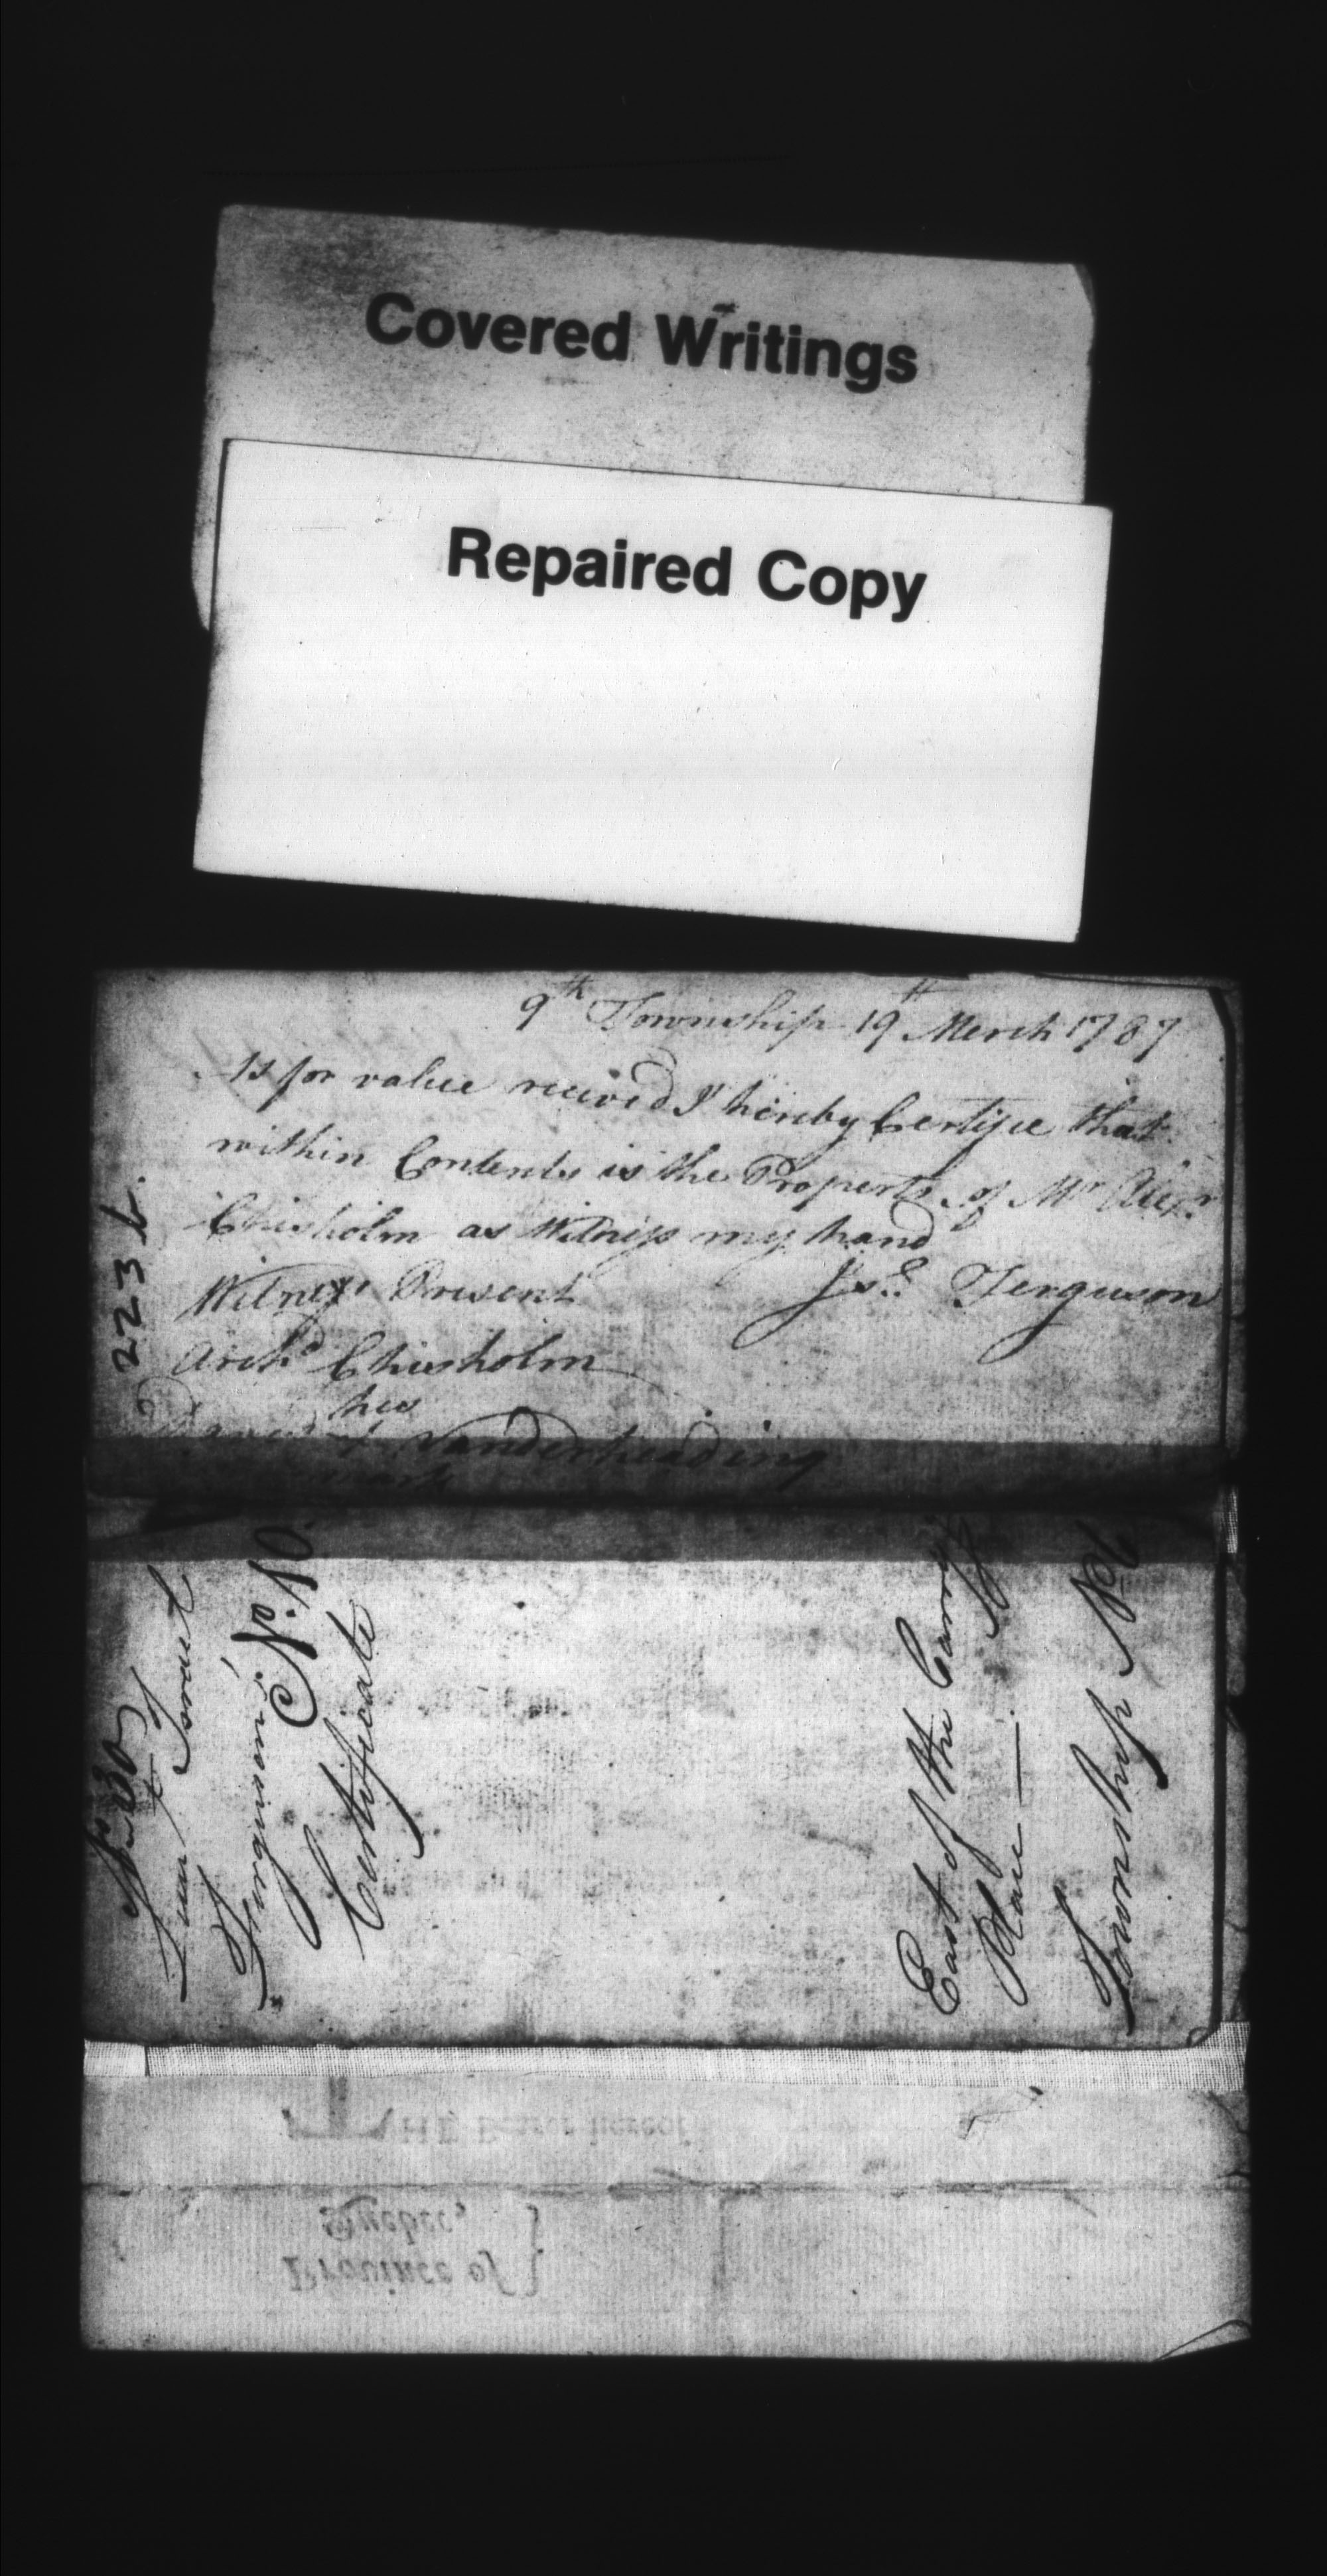 Covered Writings
Repaired Copy
9th Township 19th Merch 1787
As for value recived I hereby Certifie that
within Contents is the Property of Mr Alexr
Chisholm as Witness my hand
Witness Present Jsl. Ferguson
Archd Chisholm
his
Vanderheading
mark
223 b.
No. 30
Israel
Ferguson's
No. 10.
Certificate
East of the Carrying
Place
Township No 8
THE Bearer hereof
Quebec,
Province of